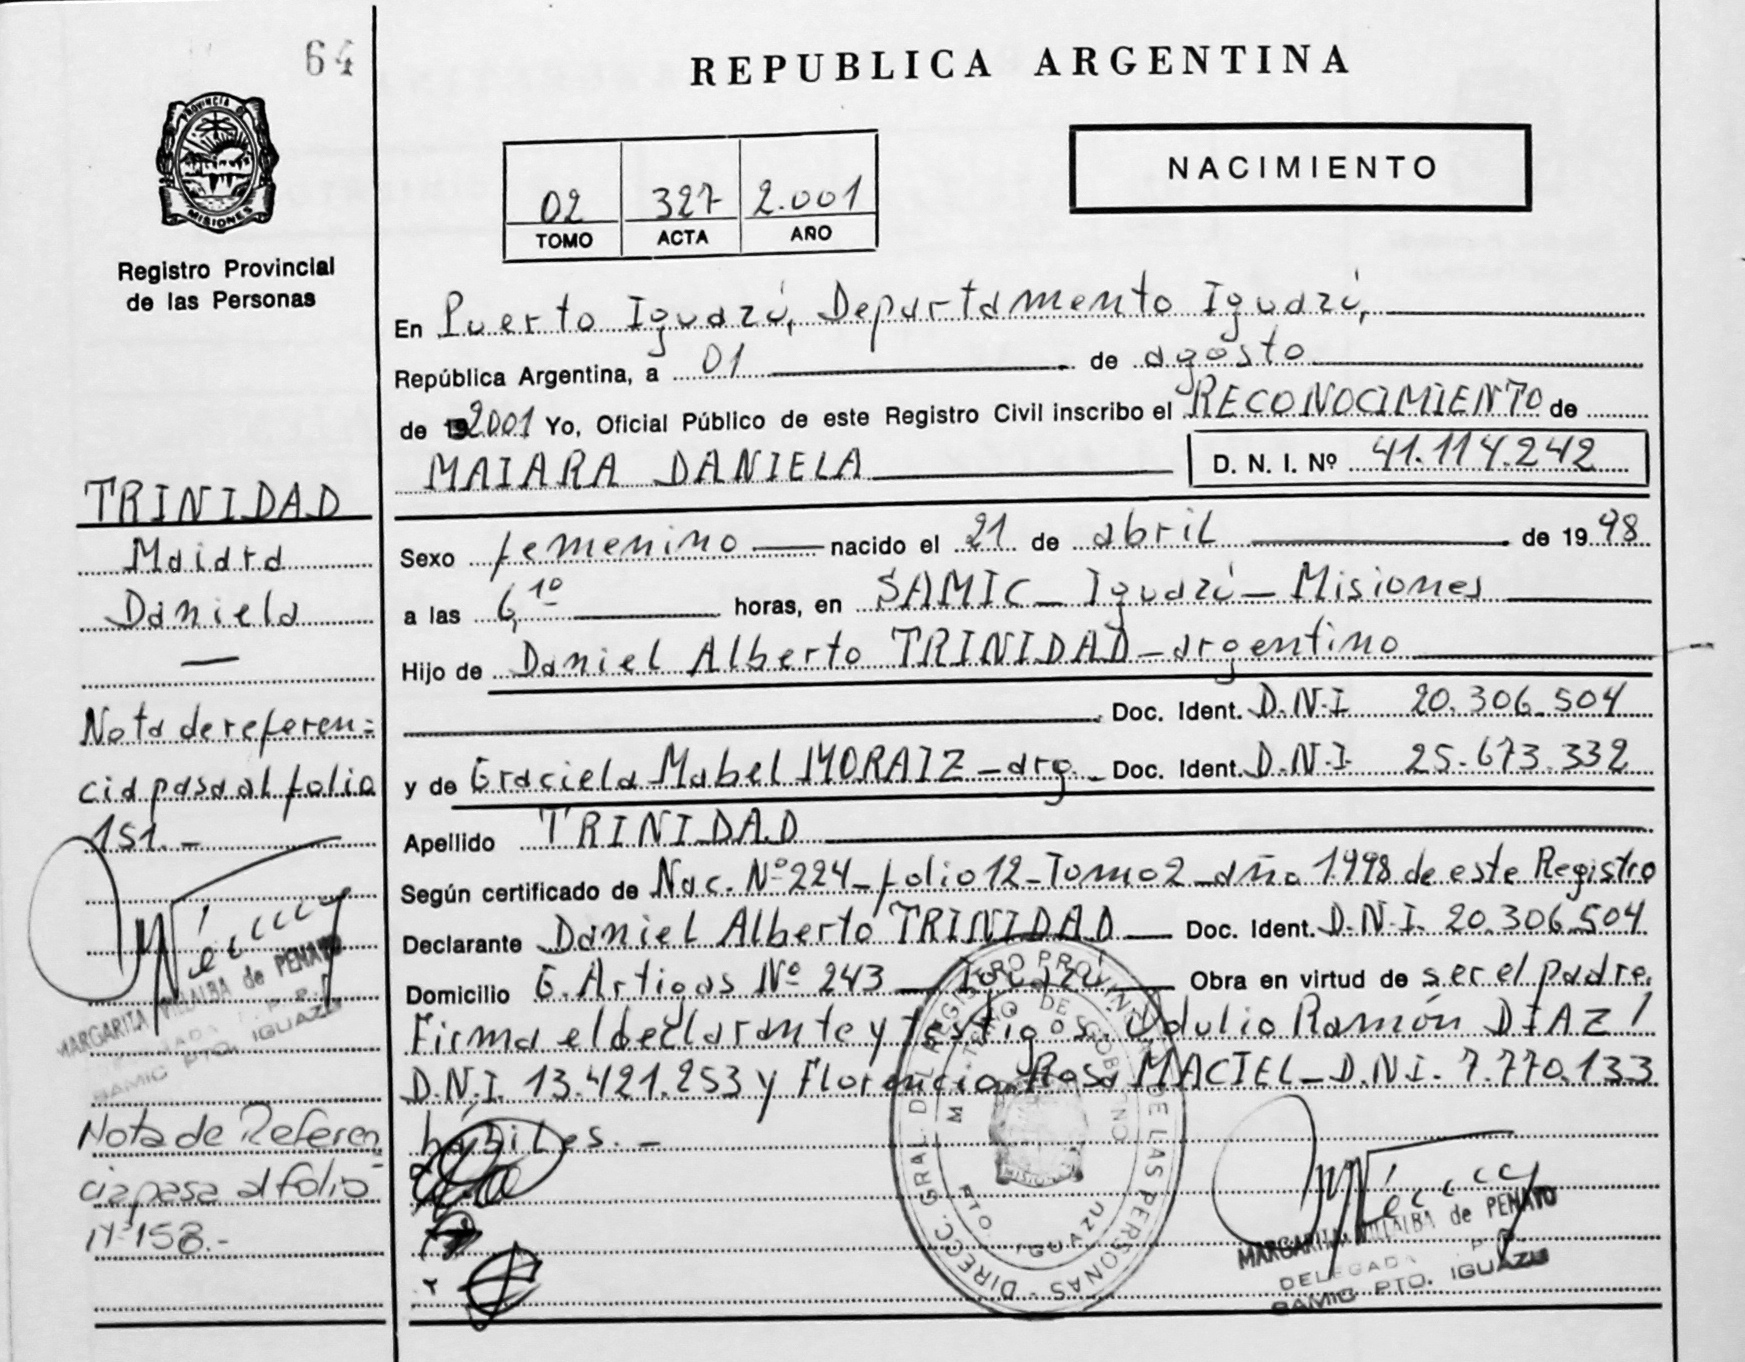 64
REPUBLICA ARGENTINA
PROVINCIA DE
MISIONES
Registro Provincial
de las Personas
NACIMIENTO
02 327 2.001
TOMO ACTA AÑO
En Puerto Iguazú, Departamento Iguazú,
República Argentina, a 01 de agosto
de 192001 Yo, Oficial Público de este Registro Civil inscribo el RECONOCIMIENTO de
MAIARA DANIELA D. N. I. Nº 41.114.242
TRINIDAD
Maiara
Daniela
Sexo femenino nacido el 21 de abril de 1998
a las 6,10 horas, en SAMIC - Iguazú - Misiones
Hijo de Daniel Alberto TRINIDAD - argentino
Doc. Ident. D.N.I 20.306.504
y de Graciela Mabel MORAIZ - arg. - Doc. Ident. D.N.I. 25.673.332
Apellido TRINIDAD
Según certificado de Nac. Nº 224 - folio 12 - Tomo 2 - año 1998 de este Registro
Declarante Daniel Alberto TRINIDAD Doc. Ident. D.N.I. 20.306.504
Domicilio G. Artigas Nº 243 - Iguazú Obra en virtud de ser el padre.
Firma el declarante y testigos, Odulio Ramón DIAZ
D.N.I. 13.421.253 y Florencio Rosa MACIEL - D.N.I. 7.770.133
hábiles. -
Nota de referen=
cia pasa al folio
151. -
MARGARITA VILLALBA de PENAYO
SAMIC PTO. IGUAZU
Nota de Referen
cia pasa al folio
Nº 158. -
DIRECC. GRAL. DEL REGISTRO PROVINCIAL DE LAS PERSONAS
PTO. IGUAZU
MISIONES
MARGARITA VILLALBA de PENAYO
DELEGADA
SAMIC PTO. IGUAZU